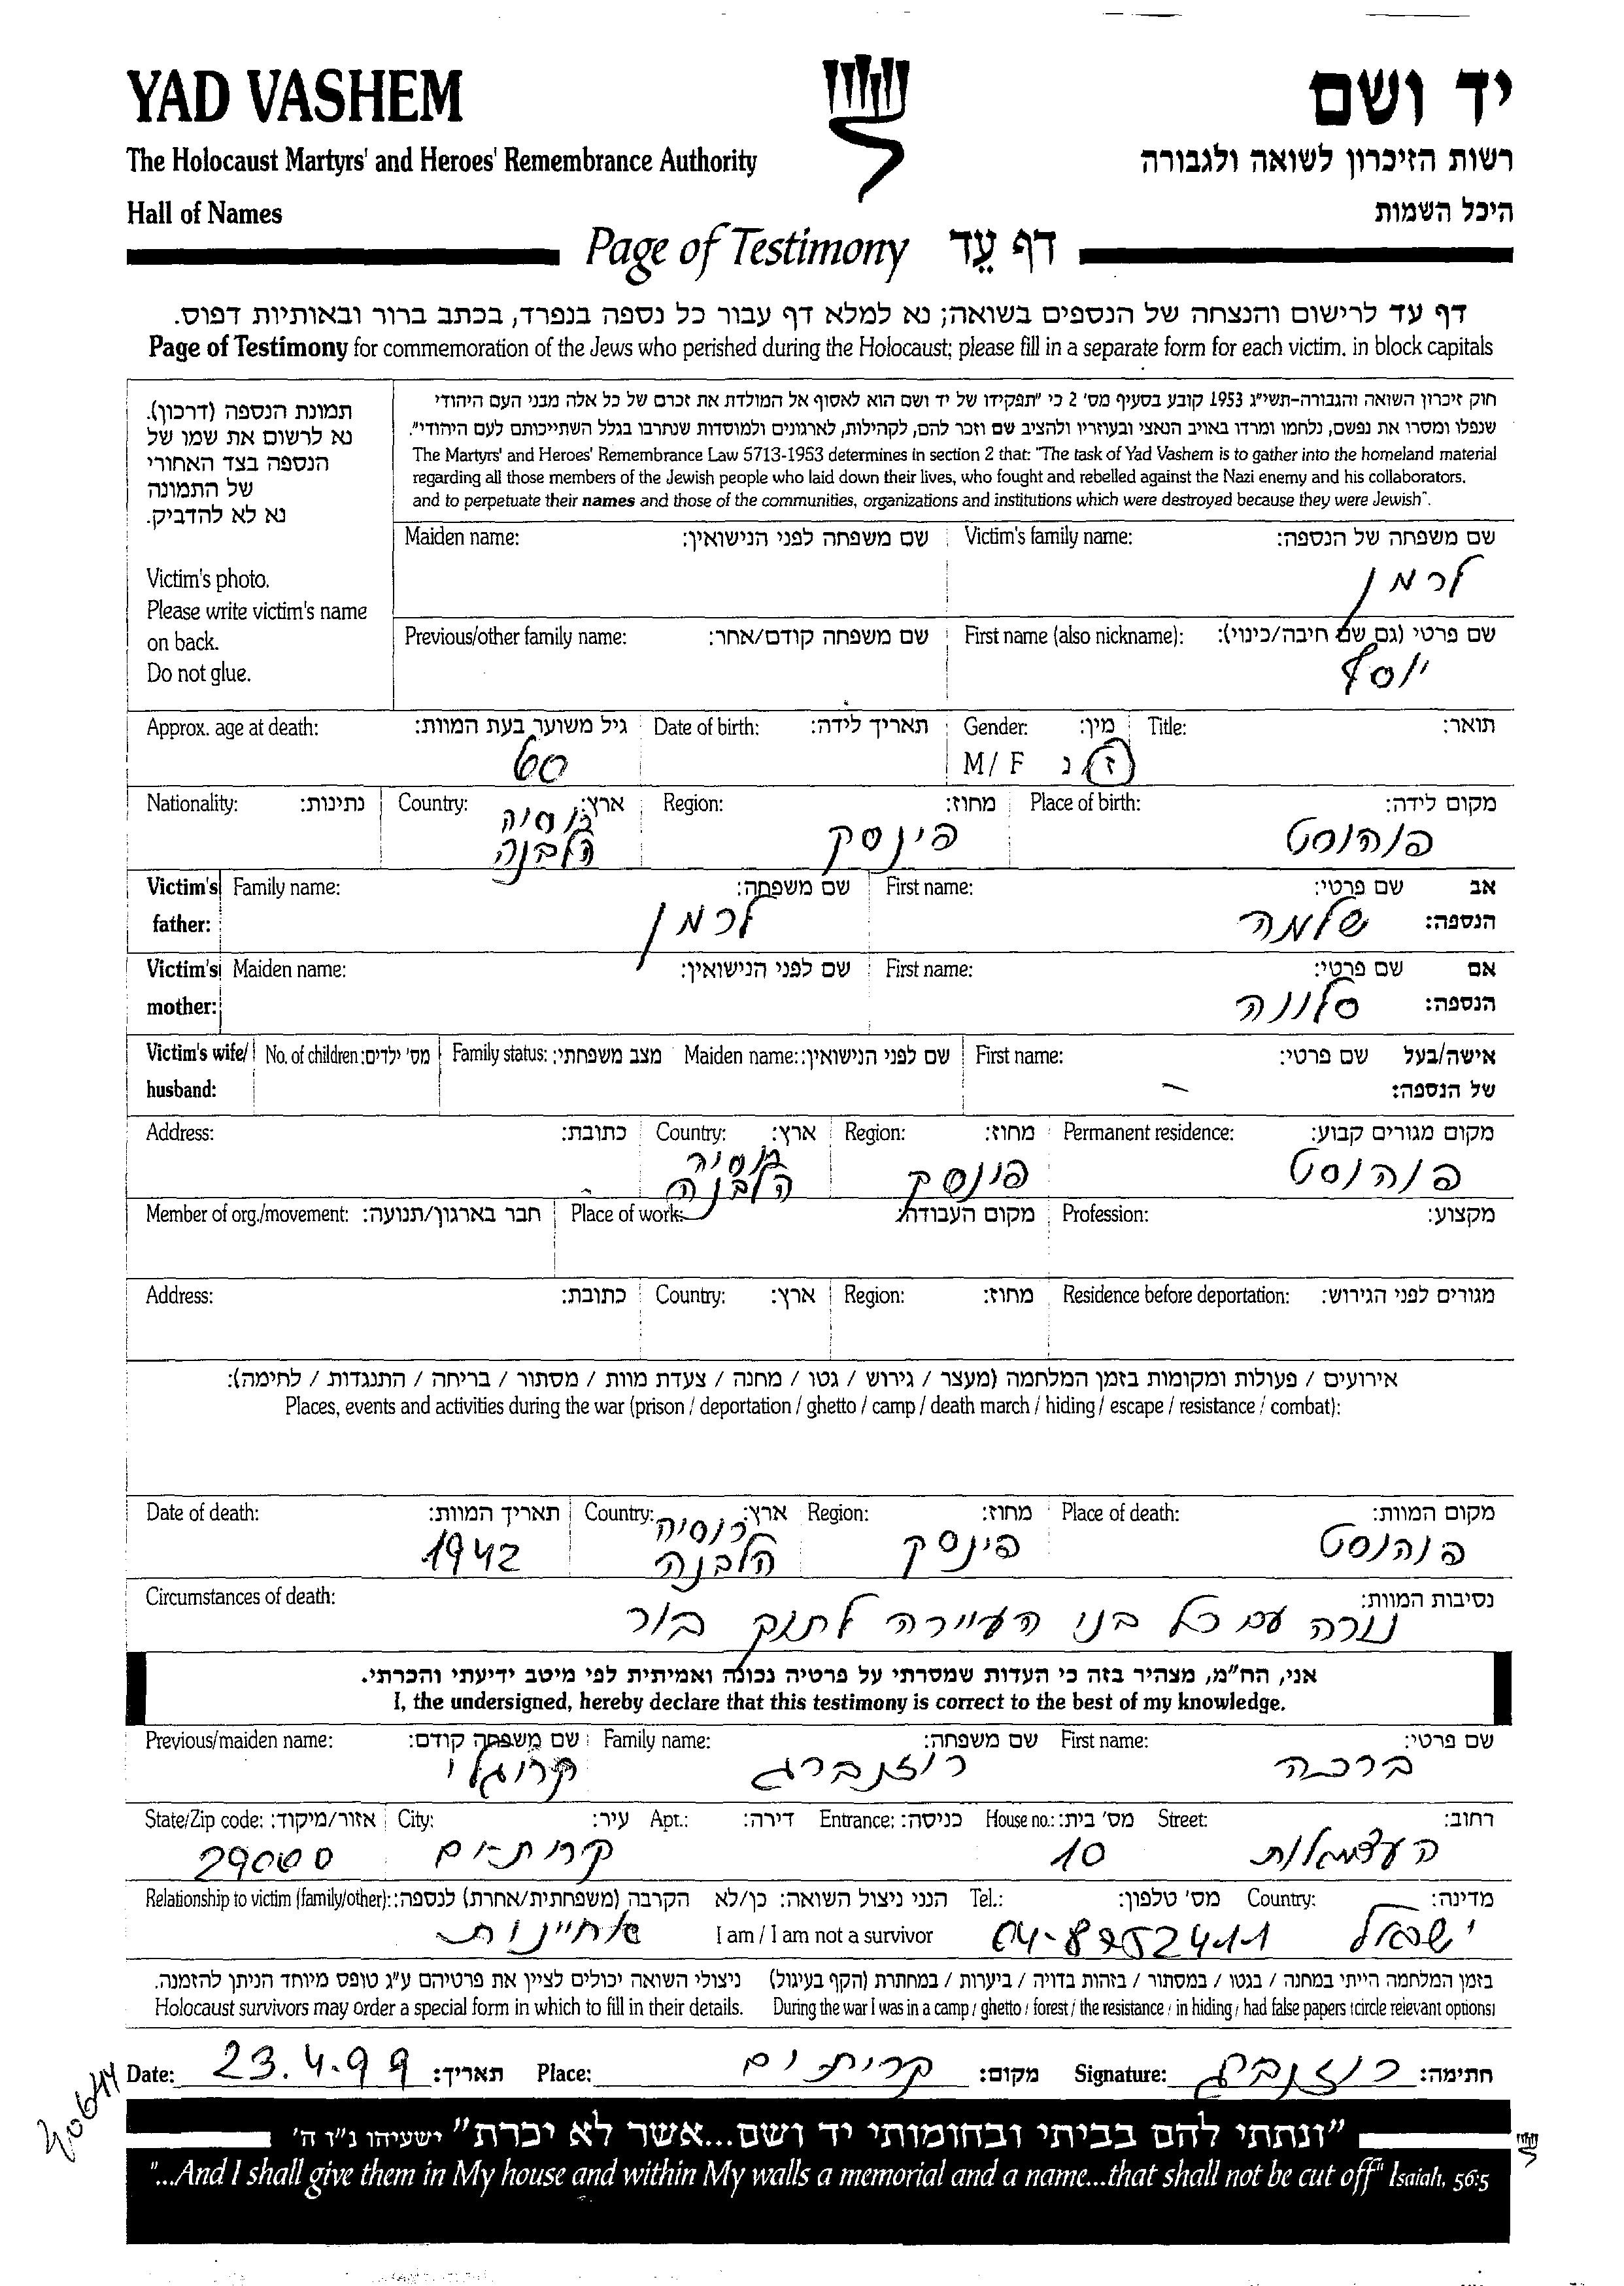 YAD VASHEM
יד ושם
The Holocaust Martyrs' and Heroes' Remembrance Authority
רשות הזיכרון לשואה ולגבורה
Hall of Names
היכל השמות
Page of Testimony דף עֵד
דף עד לרישום והנצחה של הנספים בשואה; נא למלא דף עבור כל נספה בנפרד, בכתב ברור ובאותיות דפוס.
Page of Testimony for commemoration of the Jews who perished during the Holocaust; please fill in a separate form for each victim. in block capitals
תמונת הנספה (דרכון).
נא לרשום את שמו של
הנספה בצד האחורי
של התמונה
נא לא להדביק.
Victim's photo.
Please write victim's name
on back.
Do not glue.
חוק זיכרון השואה והגבורה-תשי"ג 1953 קובע בסעיף מס' 2 כי "תפקידו של יד ושם הוא לאסוף אל המולדת את זכרם של כל אלה מבני העם היהודי
שנפלו ומסרו את נפשם, נלחמו ומרדו באויב הנאצי ובעוזריו ולהציב שם וזכר להם, לקהילות, לארגונים ולמוסדות שנחרבו בגלל השתייכותם לעם היהודי".
The Martyrs' and Heroes' Remembrance Law 5713-1953 determines in section 2 that: "The task of Yad Vashem is to gather into the homeland material
regarding all those members of the Jewish people who laid down their lives, who fought and rebelled against the Nazi enemy and his collaborators.
and to perpetuate their names and those of the communities, organizations and institutions which were destroyed because they were Jewish".
Victim's family name: שם משפחה של הנספה:
לרמן
Maiden name: שם משפחה לפני הנישואין:
First name (also nickname): שם פרטי (גם שם חיבה/כינוי):
יוסף
Previous/other family name: שם משפחה קודם/אחר:
Title: תואר:
Gender: מין:
M/ F ז/נ
Date of birth: תאריך לידה:
Approx. age at death: גיל משוער בעת המוות:
60
Place of birth: מקום לידה:
פוהוסט
Region: מחוז:
פינסק
Country: ארץ:
רוסיה
הלבנה
Nationality: נתינות:
Victim's father: אב הנספה:
First name: שם פרטי:
שלמה
Family name: שם משפחה:
לרמן
Victim's mother: אם הנספה:
First name: שם פרטי:
Maiden name: שם לפני הנישואין:
Victim's wife/ husband: אישה/בעל של הנספה:
First name: שם פרטי:
Maiden name: שם לפני הנישואין:
Family status: מצב משפחתי:
No. of children: מס' ילדים:
Permanent residence: מקום מגורים קבוע:
פוהוסט
Region: מחוז:
פינסק
Country: ארץ:
רוסיה
הלבנה
Address: כתובת:
Profession: מקצוע:
Place of work: מקום העבודה:
Member of org./movement: חבר בארגון/תנועה:
Residence before deportation: מגורים לפני הגירוש:
Region: מחוז:
Country: ארץ:
Address: כתובת:
אירועים / פעולות ומקומות בזמן המלחמה (מעצר / גירוש / גטו / מחנה / צעדת מוות / מסתור / בריחה / התנגדות / לחימה):
Places, events and activities during the war (prison / deportation / ghetto / camp / death march / hiding / escape / resistance / combat):
Place of death: מקום המוות:
פוהוסט
Region: מחוז:
פינסק
Country: ארץ:
רוסיה
הלבנה
Date of death: תאריך המוות:
1942
Circumstances of death: נסיבות המוות:
נורה עם כל בני העיירה לתוך בור
אני, הח"מ, מצהיר בזה כי העדות שמסרתי על פרטיה נכונה ואמיתית לפי מיטב ידיעתי והכרתי.
I, the undersigned, hereby declare that this testimony is correct to the best of my knowledge.
First name: שם פרטי:
ברכה
Family name: שם משפחה:
רוזנברג
Previous/maiden name: שם משפחה קודם:
קרוגלי
Street: רחוב:
העצמאות
House no.: מס' בית:
10
Entrance: כניסה:
Apt.: דירה:
City: עיר:
קרית-ים
State/Zip code: אזור/מיקוד:
29000
Country: מדינה:
ישראל
Tel.: מס' טלפון:
04-8752411
הנני ניצול השואה: כן/לא
I am / I am not a survivor
Relationship to victim (family/other): הקרבה (משפחתית/אחרת) לנספה:
אחיינות
בזמן המלחמה הייתי במחנה / בגטו / במסתור / בזהות בדויה / ביערות / במחתרת (הקף בעיגול)
ניצולי השואה יכולים לציין את פרטיהם ע"ג טופס מיוחד הניתן להזמנה.
Holocaust survivors may order a special form in which to fill in their details.
During the war I was in a camp / ghetto / forest / the resistance / in hiding / had false papers (circle relevant options)
Date: 23.4.99 תאריך:
Place: קרית ים מקום:
Signature: רוזנברג חתימה:
"ונתתי להם בביתי ובחומותי יד ושם...אשר לא יכרת" ישעיהו נ"ו ה'
"...And I shall give them in My house and within My walls a memorial and a name...that shall not be cut off" Isaiah, 56:5